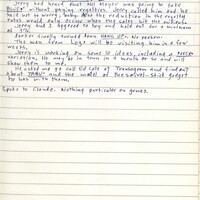 Jerry had heard that Mel Mayer was going to take
without paying royalties. Jerry called him and he
said not to worry, that the reduction in the royalty
rates would only occur when the sales hit the
Jerry and I agreed to buy and hold out for a minimum of
5%.
Parker finally turned down HANG UP. No reason.
The man from Lego will be visiting him in a few
weeks.
Jerry is working on some 10 ideas, including a
variation. He may be in town in a month or so and will
show them to me.
He asked me to call Ed Cole of Transogram and find out
about TABU and the model of the swivel-stick gadget
he has with them.
Spoke to Claude. Nothing particular on games.